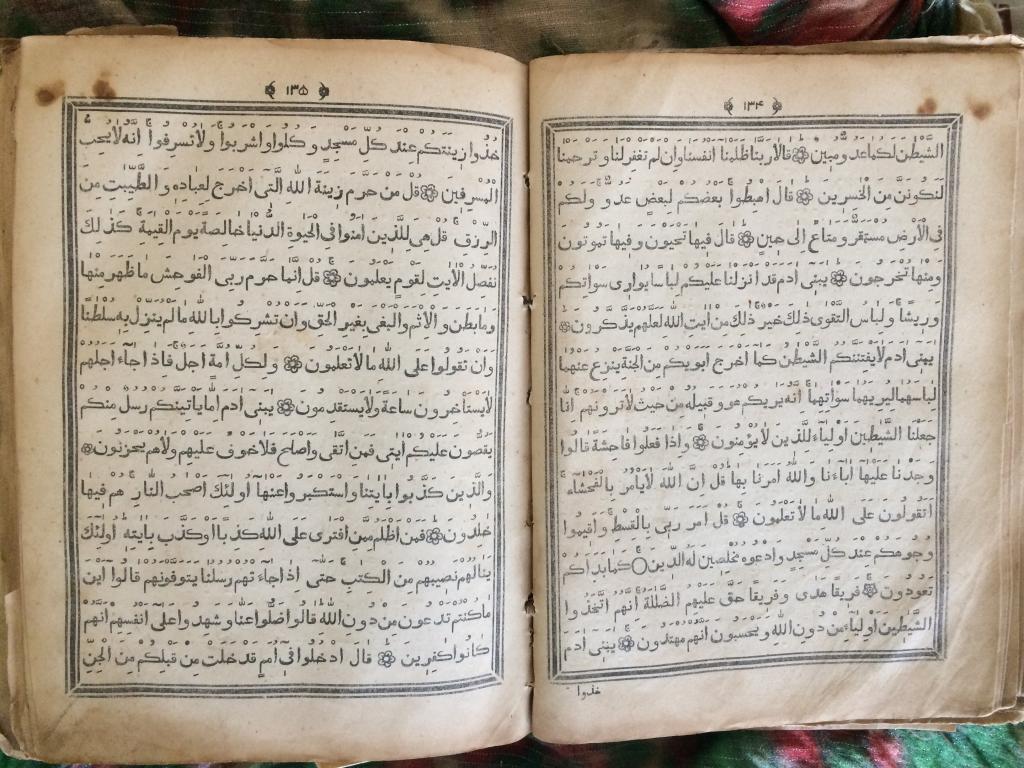 ۱۳۴
الشَّيْطٰنَ لَكُمَا عَدُوٌّ مُّبِينٌ قَالَا رَبَّنَا ظَلَمْنَا اَنْفُسَنَا وَاِنْ لَمْ تَغْفِرْ لَنَا وَتَرْحَمْنَا
لَنَكُونَنَّ مِنَ الْخٰسِرِينَ قَالَ اهْبِطُوا بَعْضُكُمْ لِبَعْضٍ عَدُوٌّ وَلَكُمْ
فِى الْاَرْضِ مُسْتَقَرٌّ وَمَتَاعٌ اِلٰى حِينٍ قَالَ فِيهَا تَحْيَوْنَ وَفِيهَا تَمُوتُونَ
وَمِنْهَا تُخْرَجُونَ يٰبَنِى اٰدَمَ قَدْ اَنْزَلْنَا عَلَيْكُمْ لِبَاسًا يُوَارِى سَوْاٰتِكُمْ
وَرِيشًا وَلِبَاسُ التَّقْوٰى ذٰلِكَ خَيْرٌ ذٰلِكَ مِنْ اٰيٰتِ اللهِ لَعَلَّهُمْ يَذَّكَّرُونَ
يٰبَنِى اٰدَمَ لَا يَفْتِنَنَّكُمُ الشَّيْطٰنُ كَمَا اَخْرَجَ اَبَوَيْكُمْ مِنَ الْجَنَّةِ يَنْزِعُ عَنْهُمَا
لِبَاسَهُمَا لِيُرِيَهُمَا سَوْاٰتِهِمَا اِنَّهُ يَرٰيكُمْ هُوَ وَقَبِيلُهُ مِنْ حَيْثُ لَا تَرَوْنَهُمْ اِنَّا
جَعَلْنَا الشَّيٰطِينَ اَوْلِيَآءَ لِلَّذِينَ لَا يُؤْمِنُونَ وَاِذَا فَعَلُوا فَاحِشَةً قَالُوا
وَجَدْنَا عَلَيْهَا اٰبَآءَنَا وَاللهُ اَمَرَنَا بِهَا قُلْ اِنَّ اللهَ لَا يَأْمُرُ بِالْفَحْشَآءِ
اَتَقُولُونَ عَلَى اللهِ مَا لَا تَعْلَمُونَ قُلْ اَمَرَ رَبِّى بِالْقِسْطِ وَاَقِيمُوا
وُجُوهَكُمْ عِنْدَ كُلِّ مَسْجِدٍ وَادْعُوهُ مُخْلِصِينَ لَهُ الدِّينَ كَمَا بَدَاَكُمْ
تَعُودُونَ فَرِيقًا هَدٰى وَفَرِيقًا حَقَّ عَلَيْهِمُ الضَّلٰلَةُ اِنَّهُمُ اتَّخَذُوا
الشَّيٰطِينَ اَوْلِيَآءَ مِنْ دُونِ اللهِ وَيَحْسَبُونَ اَنَّهُمْ مُهْتَدُونَ يٰبَنِى اٰدَمَ
خذوا
۱۳۵
خُذُوا زِينَتَكُمْ عِنْدَ كُلِّ مَسْجِدٍ وَكُلُوا وَاشْرَبُوا وَلَا تُسْرِفُوا اِنَّهُ لَا يُحِبُّ
الْمُسْرِفِينَ قُلْ مَنْ حَرَّمَ زِينَةَ اللهِ الَّتِى اَخْرَجَ لِعِبَادِهِ وَالطَّيِّبٰتِ مِنَ
الرِّزْقِ قُلْ هِىَ لِلَّذِينَ اٰمَنُوا فِى الْحَيٰوةِ الدُّنْيَا خَالِصَةً يَوْمَ الْقِيٰمَةِ كَذٰلِكَ
نُفَصِّلُ الْاٰيٰتِ لِقَوْمٍ يَعْلَمُونَ قُلْ اِنَّمَا حَرَّمَ رَبِّىَ الْفَوٰحِشَ مَا ظَهَرَ مِنْهَا
وَمَا بَطَنَ وَالْاِثْمَ وَالْبَغْىَ بِغَيْرِ الْحَقِّ وَاَنْ تُشْرِكُوا بِاللهِ مَا لَمْ يُنَزِّلْ بِهِ سُلْطٰنًا
وَاَنْ تَقُولُوا عَلَى اللهِ مَا لَا تَعْلَمُونَ وَلِكُلِّ اُمَّةٍ اَجَلٌ فَاِذَا جَآءَ اَجَلُهُمْ
لَا يَسْتَأْخِرُونَ سَاعَةً وَلَا يَسْتَقْدِمُونَ يٰبَنِى اٰدَمَ اِمَّا يَأْتِيَنَّكُمْ رُسُلٌ مِنْكُمْ
يَقُصُّونَ عَلَيْكُمْ اٰيٰتِى فَمَنِ اتَّقٰى وَاَصْلَحَ فَلَا خَوْفٌ عَلَيْهِمْ وَلَا هُمْ يَحْزَنُونَ
وَالَّذِينَ كَذَّبُوا بِاٰيٰتِنَا وَاسْتَكْبَرُوا عَنْهَا اُولٰئِكَ اَصْحٰبُ النَّارِ هُمْ فِيهَا
خٰلِدُونَ فَمَنْ اَظْلَمُ مِمَّنِ افْتَرٰى عَلَى اللهِ كَذِبًا اَوْ كَذَّبَ بِاٰيٰتِهِ اُولٰئِكَ
يَنَالُهُمْ نَصِيبُهُمْ مِنَ الْكِتٰبِ حَتّٰى اِذَا جَآءَتْهُمْ رُسُلُنَا يَتَوَفَّوْنَهُمْ قَالُوا اَيْنَ
مَا كُنْتُمْ تَدْعُونَ مِنْ دُونِ اللهِ قَالُوا ضَلُّوا عَنَّا وَشَهِدُوا عَلٰى اَنْفُسِهِمْ اَنَّهُمْ
كَانُوا كٰفِرِينَ قَالَ ادْخُلُوا فِى اُمَمٍ قَدْ خَلَتْ مِنْ قَبْلِكُمْ مِنَ الْجِنِّ